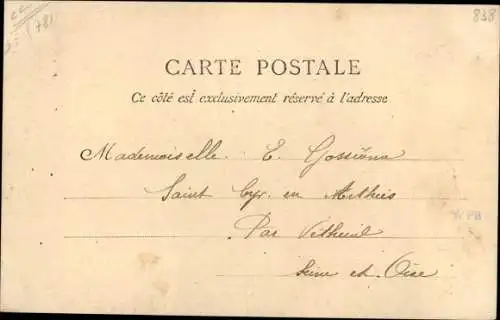 838
781
CARTE POSTALE
Ce côté est exclusivement réservé à l'adresse
Mademoiselle E.
Saint Cyr en Arthies
Par Vétheuil
Seine et Oise